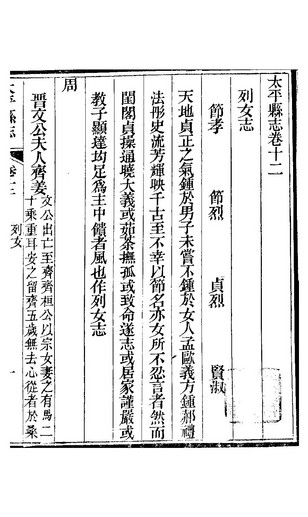 太平縣志卷十二
列女志
節孝 節烈 貞烈 賢淑
天地貞正之氣鍾於男子未嘗不鍾於女人孟歐義方鍾郝禮
法彤史流芳輝映千古至不幸以節名亦女所不忍言者然而
閨閣貞操通曉大義或茹茶撫孤或致命遂志或居家謹嚴或
教子顯達均足為主中饋者風也作列女志
周
晉文公夫人齊姜 文公出亡至齊齊桓公以宗女妻之有馬二
十乘重耳安之留齊五歲無去心從者於桑
太平縣志 卷十二 列女 一